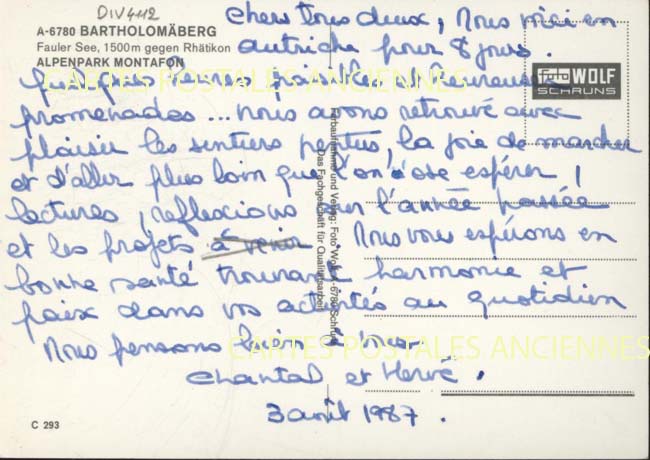 DIV4112
A-6780 BARTHOLOMÄBERG
Fauler See, 1500m gegen Rhätikon
ALPENPARK MONTAFON
foto WOLF
SCHRUNS
Chers tous deux, Nous voici en
autriche pour 8 jours.
quelques heures paisibles d'heureuses
promenades... nous avons retrouvé avec
plaisir les sentiers pentus, la joie de marcher
et d'aller plus loin que l'on n'ose espérer !
lectures, reflexions sur l'année passée
et les projets à venir. Nous vous espérons en
bonne santé trouvant harmonie et
paix dans vos activités au quotidien
Nous pensons bien à vous
Chantal et Hervé.
3 août 1987.
Farbaufnahme und Verlag: Foto Wolf, A-6780 Schruns
Das Fachgeschäft für Qualitätsarbeit
CARTES POSTALES ANCIENNES
CARTES POSTALES ANCIENNES
C 293